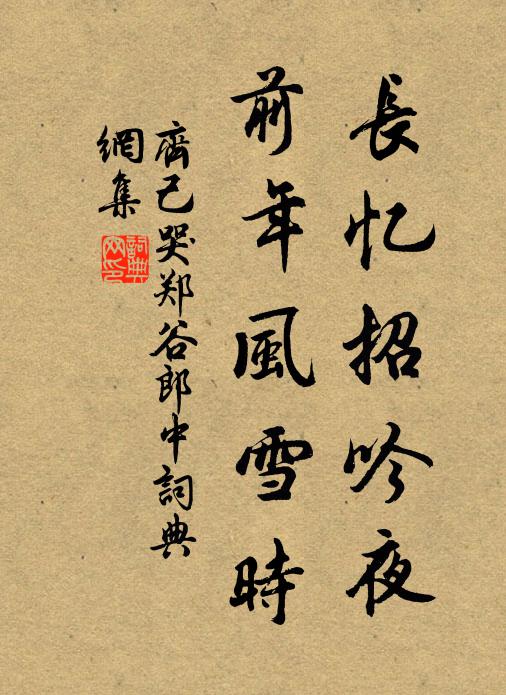 長忆招吟夜
前年風雪時
齊己哭郑谷郎中詞典
網集
詞典
网印